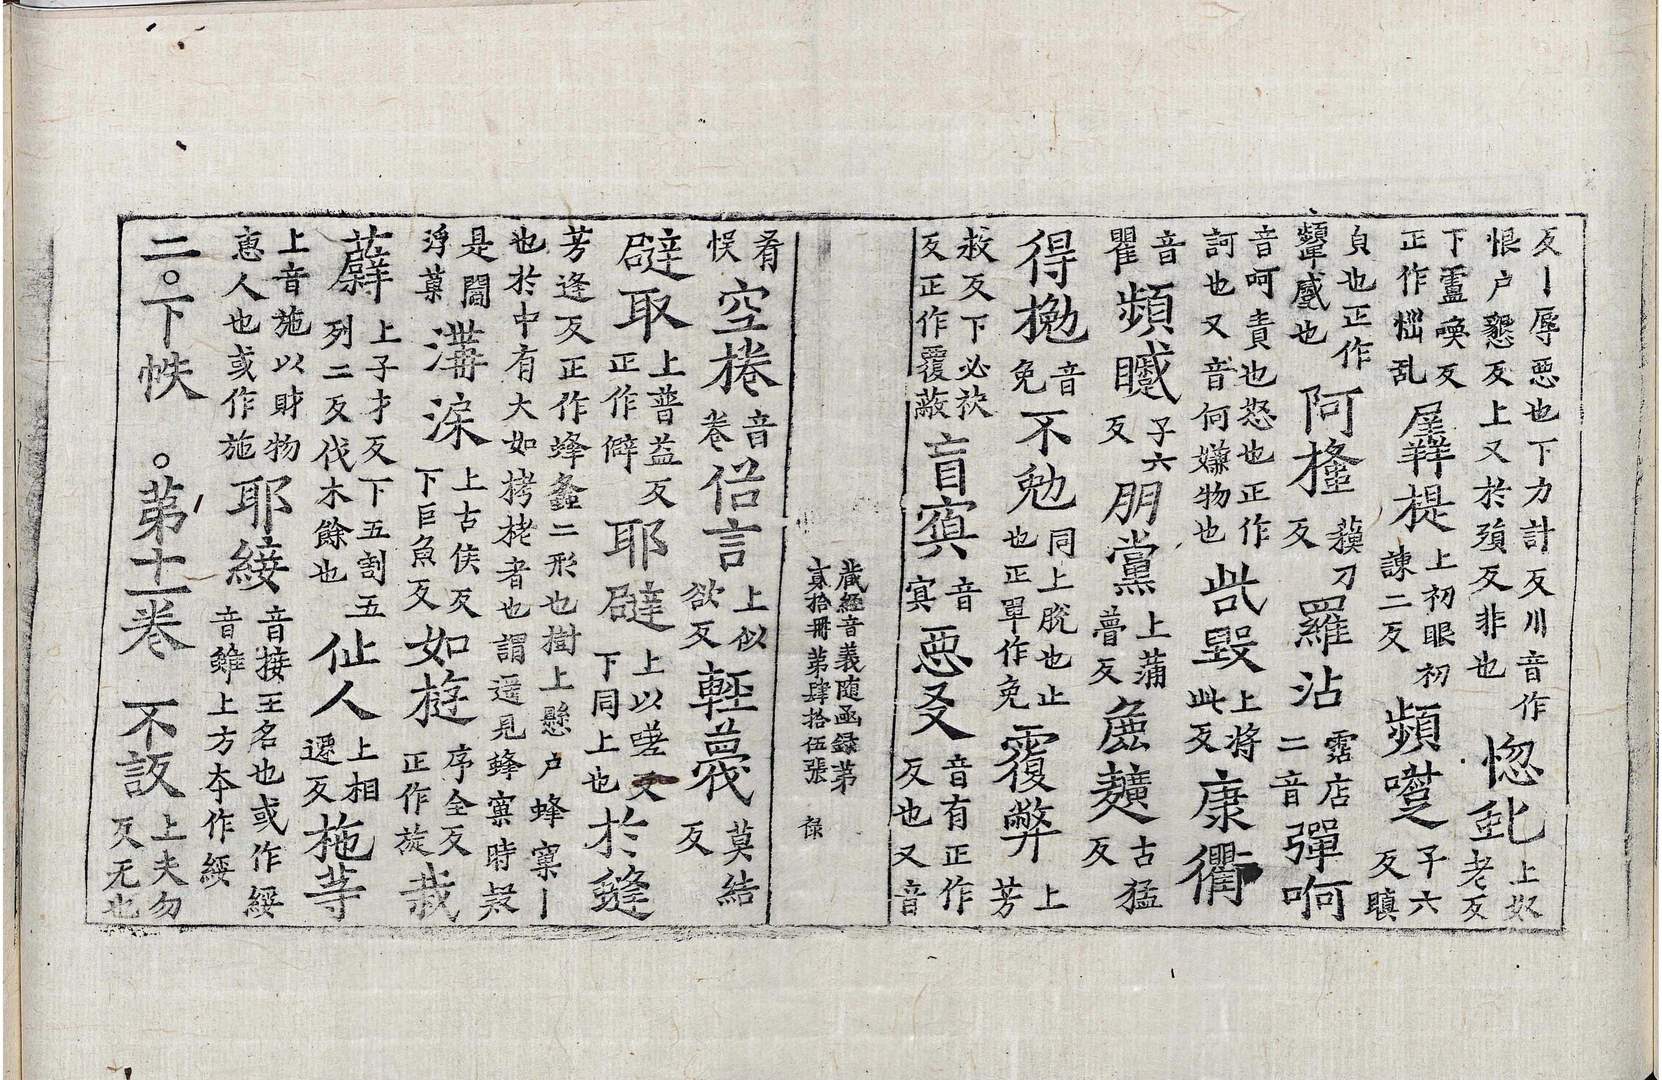 反丨辱惡也下力計反川音作恨户懇反上又於殞反非也惚上奴老反
下䨓喚反正作椔乱羼提上初眼初諫二反頻子六反瞋
貟也正作顰蹙也阿蘓刀反羅沾霑店二音彈啊
音呵責也怒也正作訶也又音何嫌物也呰毀上將此反康衢
音瞿頻子六反朋黨上蒲瞢反麁古猛反
得音免不勉同上脱也止也正單作免覆弊上芳
救反下必袂反正作覆蔽盲㝠音㝠惡㕛音有正作反也又音
藏經音義随函録第貳拾冊第肆拾伍張 録
肴悮空棬音卷俗言上似欲反輕薎莫結反
躃取上普益反正作僻耶躃上以嗟反下同上也於縫
芳逢反正作蜂螽二形也樹上懸户蜂窠丨也於中有大如栲栳者也謂遥見蜂窠時疑
是閻浮菓溝上古侯反下巨魚反如序全反正作旋㦲
上子才反下五割五列二反伐木餘也仙人上相遷反拖等
上音施以財物惠人也或作施耶音接王名也或作綏音雖上方本作綏
二。下帙 。苐十二卷 不上夫勿反无也